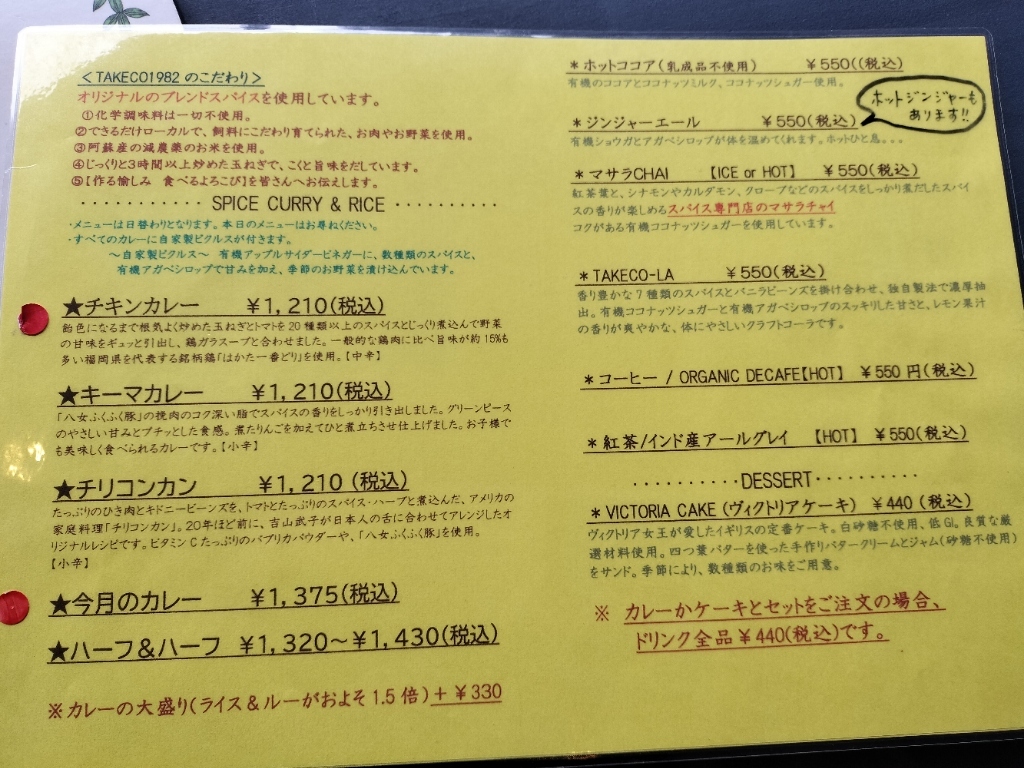 ＜TAKECO1982 のこだわり＞
オリジナルのブレンドスパイスを使用しています。
①化学調味料は一切不使用。
②できるだけローカルで、飼料にこだわり育てられた、お肉やお野菜を使用。
③阿蘇産の減農薬のお米を使用。
④じっくりと3時間以上炒めた玉ねぎで、こくと旨味をだしています。
⑤【作る愉しみ　食べるよろこび】を皆さんへお伝えします。
・・・・・・・・・・・ SPICE CURRY & RICE ・・・・・・・・・・
・メニューは日替わりとなります。本日のメニューはお尋ねください。
・すべてのカレーに自家製ピクルスが付きます。
～自家製ピクルス～　有機アップルサイダービネガーに、数種類のスパイスと、
有機アガベシロップで甘みを加え、季節のお野菜を漬け込んでいます。
★チキンカレー　￥1,210(税込)
飴色になるまで根気よく炒めた玉ねぎとトマトを20種類以上のスパイスとじっくり煮込んで野菜
の甘味をギュッと引出し、鶏ガラスープと合わせました。一般的な鶏肉に比べ旨味が約15%も
多い福岡県を代表する銘柄鶏「はかた一番どり」を使用。【中辛】
★キーマカレー　￥1,210(税込)
「八女ふくふく豚」の挽肉のコク深い脂でスパイスの香りをしっかり引き出しました。グリーンピース
のやさしい甘みとプチッとした食感。煮たりんごを加えてひと煮立ちさせ仕上げました。お子様で
も美味しく食べられるカレーです。【小辛】
★チリコンカン　￥1,210 (税込)
たっぷりのひき肉とキドニービーンズを、トマトとたっぷりのスパイス・ハーブと煮込んだ、アメリカの
家庭料理「チリコンカン」。20年ほど前に、吉山武子が日本人の舌に合わせてアレンジしたオ
リジナルレシピです。ビタミンCたっぷりのパプリカパウダーや、「八女ふくふく豚」を使用。
【小辛】
★今月のカレー　￥1,375(税込)
★ハーフ＆ハーフ　￥1,320～￥1,430(税込)
※カレーの大盛り(ライス＆ルーがおよそ1.5倍)＋￥330
＊ホットココア(乳成品不使用)　￥550((税込)
有機のココアとココナッツミルク、ココナッツシュガー使用。
＊ジンジャーエール　￥550(税込)
ホットジンジャーも
あります!!
有機ショウガとアガベシロップが体を温めてくれます。ホットひと息。。。
＊マサラCHAI　【ICE or HOT】　￥550(税込)
紅茶葉と、シナモンやカルダモン、クローブなどのスパイスをしっかり煮だしたスパイ
スの香りが楽しめるスパイス専門店のマサラチャイ
コクがある有機ココナッツシュガーを使用しています。
＊TAKECO-LA　￥550(税込)
香り豊かな7種類のスパイスとバニラビーンズを掛け合わせ、独自製法で濃厚抽
出。有機ココナッツシュガーと有機アガベシロップのスッキリした甘さと、レモン果汁
の香りが爽やかな、体にやさしいクラフトコーラです。
＊コーヒー / ORGANIC DECAFE【HOT】　￥550円(税込)
＊紅茶/インド産アールグレイ　【HOT】　￥550(税込)
・・・・・・・・・・DESSERT・・・・・・・・・・
＊VICTORIA CAKE (ヴィクトリアケーキ)　￥440 (税込)
ヴィクトリア女王が愛したイギリスの定番ケーキ。白砂糖不使用、低GI。良質な厳
選材料使用。四つ葉バターを使った手作りバタークリームとジャム(砂糖不使用)
をサンド。季節により、数種類のお味をご用意。
※ カレーかケーキとセットをご注文の場合、
ドリンク全品￥440(税込)です。